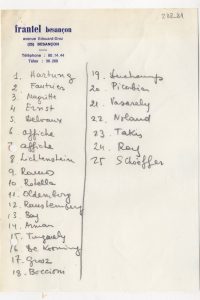 218.81
frantel besançon
avenue Edouard-Droz
(25) BESANÇON
Téléphone : 80.14.44
Télex : 36.268
1. Hartung
2. Fautrier
3. Magritte
4 Ernst
5. Delvaux
6 affiche
7 affiche
8 Lichtenstein
9 Raveo
10 Rotella
11 Oldemburg
12 Rauschenberg
13 Bay
14 Arman
15. Tinguely
16 De Kooning
17. Grosz
18. Boccioni
19. Duchamps
20 Picabia
21 Vasarely
22 Noland
23. Takis
24. Ray
25 Schöffer